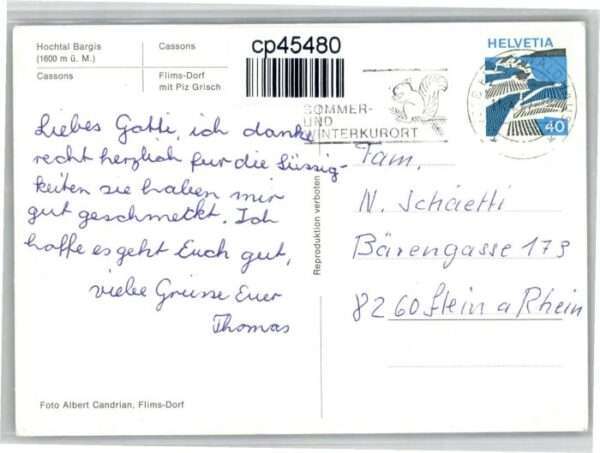 Hochtal Bargis
(1600 m ü. M.)
Cassons
Cassons
Flims-Dorf
mit Piz Grisch
cp45480
HELVETIA
40
SOMMER-
UND
WINTERKURORT
Liebes Gotti, ich danke
recht herzlich für die Süssig-
keiten sie haben mir
gut geschmeckt. Ich
hoffe es geht Euch gut,
viele Grüsse Euer
Thomas
Reproduktion verboten
Fam.
N. Schaetti
Bärengasse 173
8260 Stein a Rhein
Foto Albert Candrian, Flims-Dorf